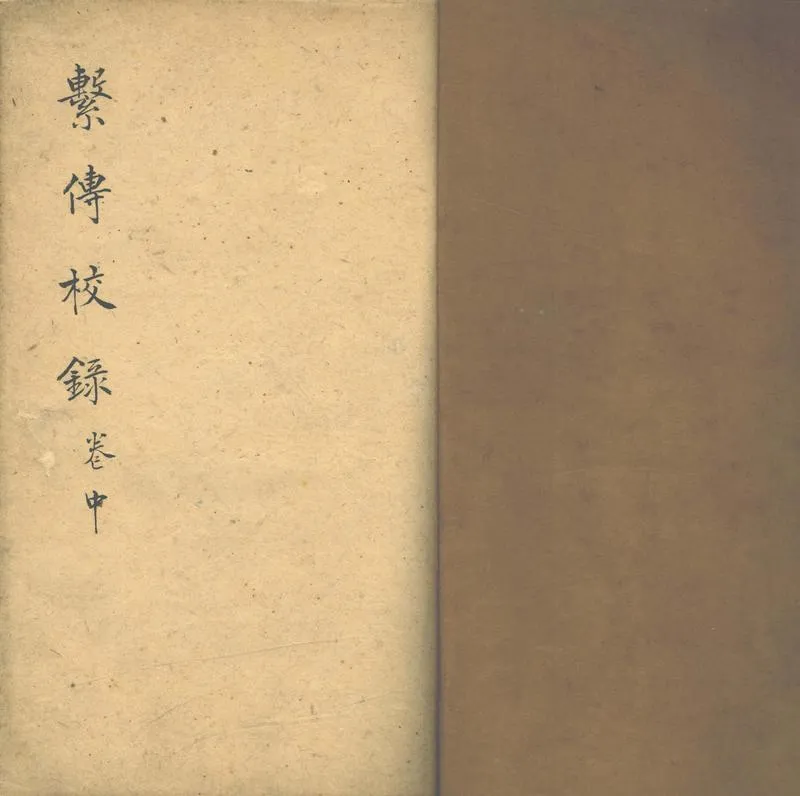 繫傳校錄卷中